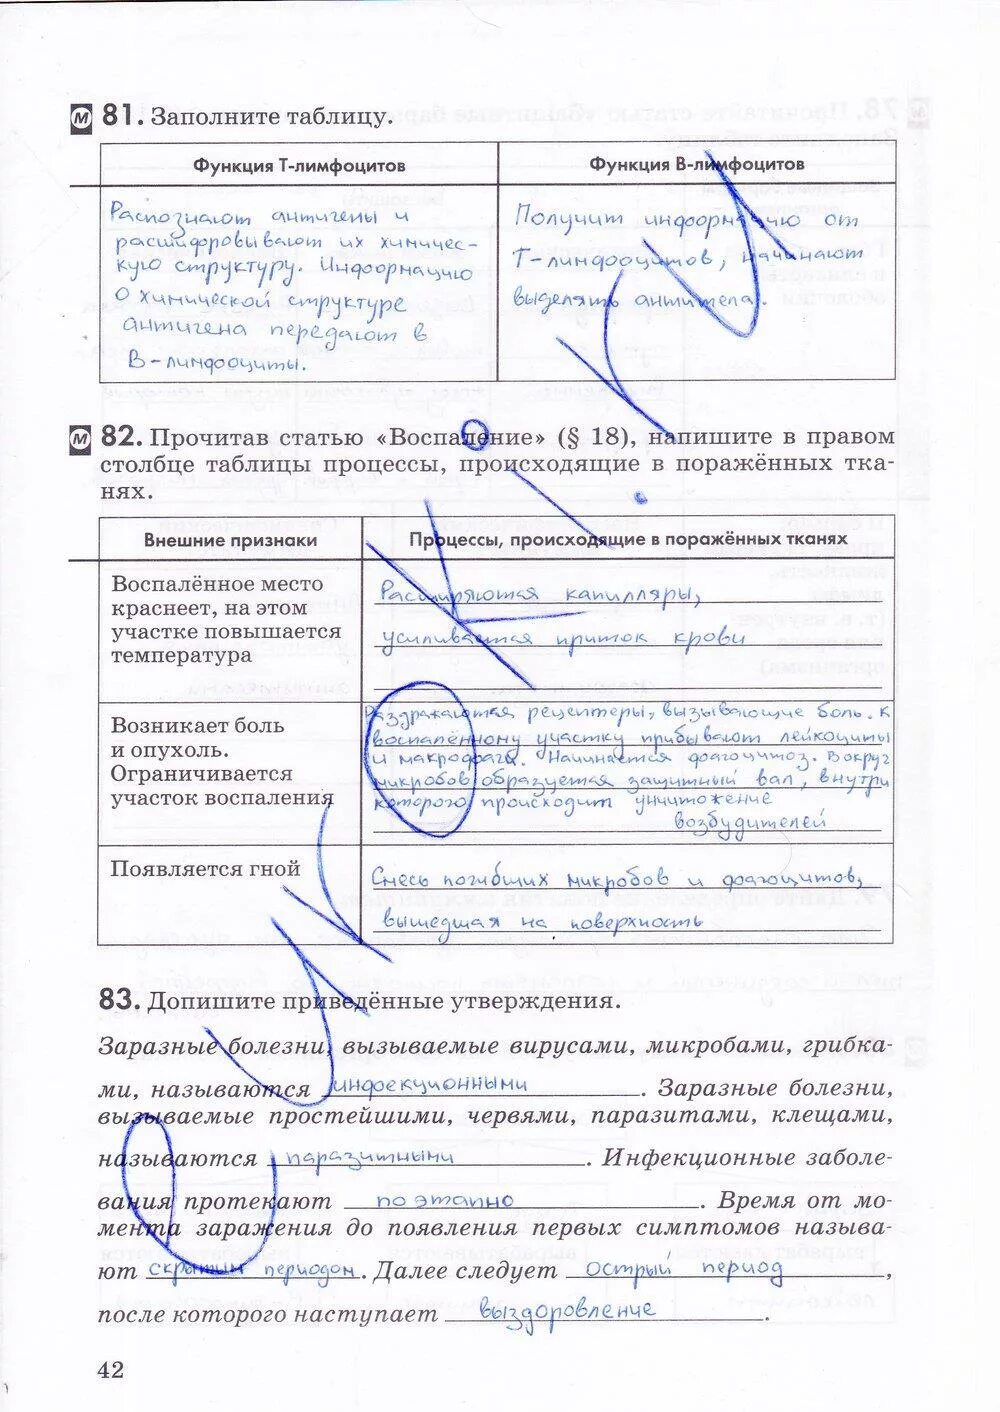 М 81. Заполните таблицу.
Функция Т-лимфоцитов
Распознают антигены и
расшифровывают их химичес-
кую структуру. Информацию
о химической структуре
антигена передают в
В-лимфоциты.
Функция В-лимфоцитов
Получит информацию от
Т-лимфоцитов, начинают
выделять антитела.
М 82. Прочитав статью «Воспаление» (§ 18), напишите в правом
столбце таблицы процессы, происходящие в поражённых тка-
нях.
Внешние признаки
Процессы, происходящие в поражённых тканях
Воспалённое место
краснеет, на этом
участке повышается
температура
Расширяются капилляры,
усиливается приток крови
Возникает боль
и опухоль.
Ограничивается
участок воспаления
Раздражаются рецептеры, вызывающие боль. К
воспалённому участку прибывают лейкоциты
и макрофаги. Начинается фагоцитоз. Вокруг
микробов образуется защитный вал, внутри
которого происходит уничтожение
возбудителей
Появляется гной
Смесь погибших микробов и фагоцитов,
вышедшая на поверхность
83. Допишите приведённые утверждения.
Заразные болезни, вызываемые вирусами, микробами, грибка-
ми, называются инфекционными. Заразные болезни,
вызываемые простейшими, червями, паразитами, клещами,
называются паразитными. Инфекционные заболе-
вания протекают поэтапно. Время от мо-
мента заражения до появления первых симптомов называ-
ют скрытым периодом. Далее следует острый период,
после которого наступает выздоровление.
42